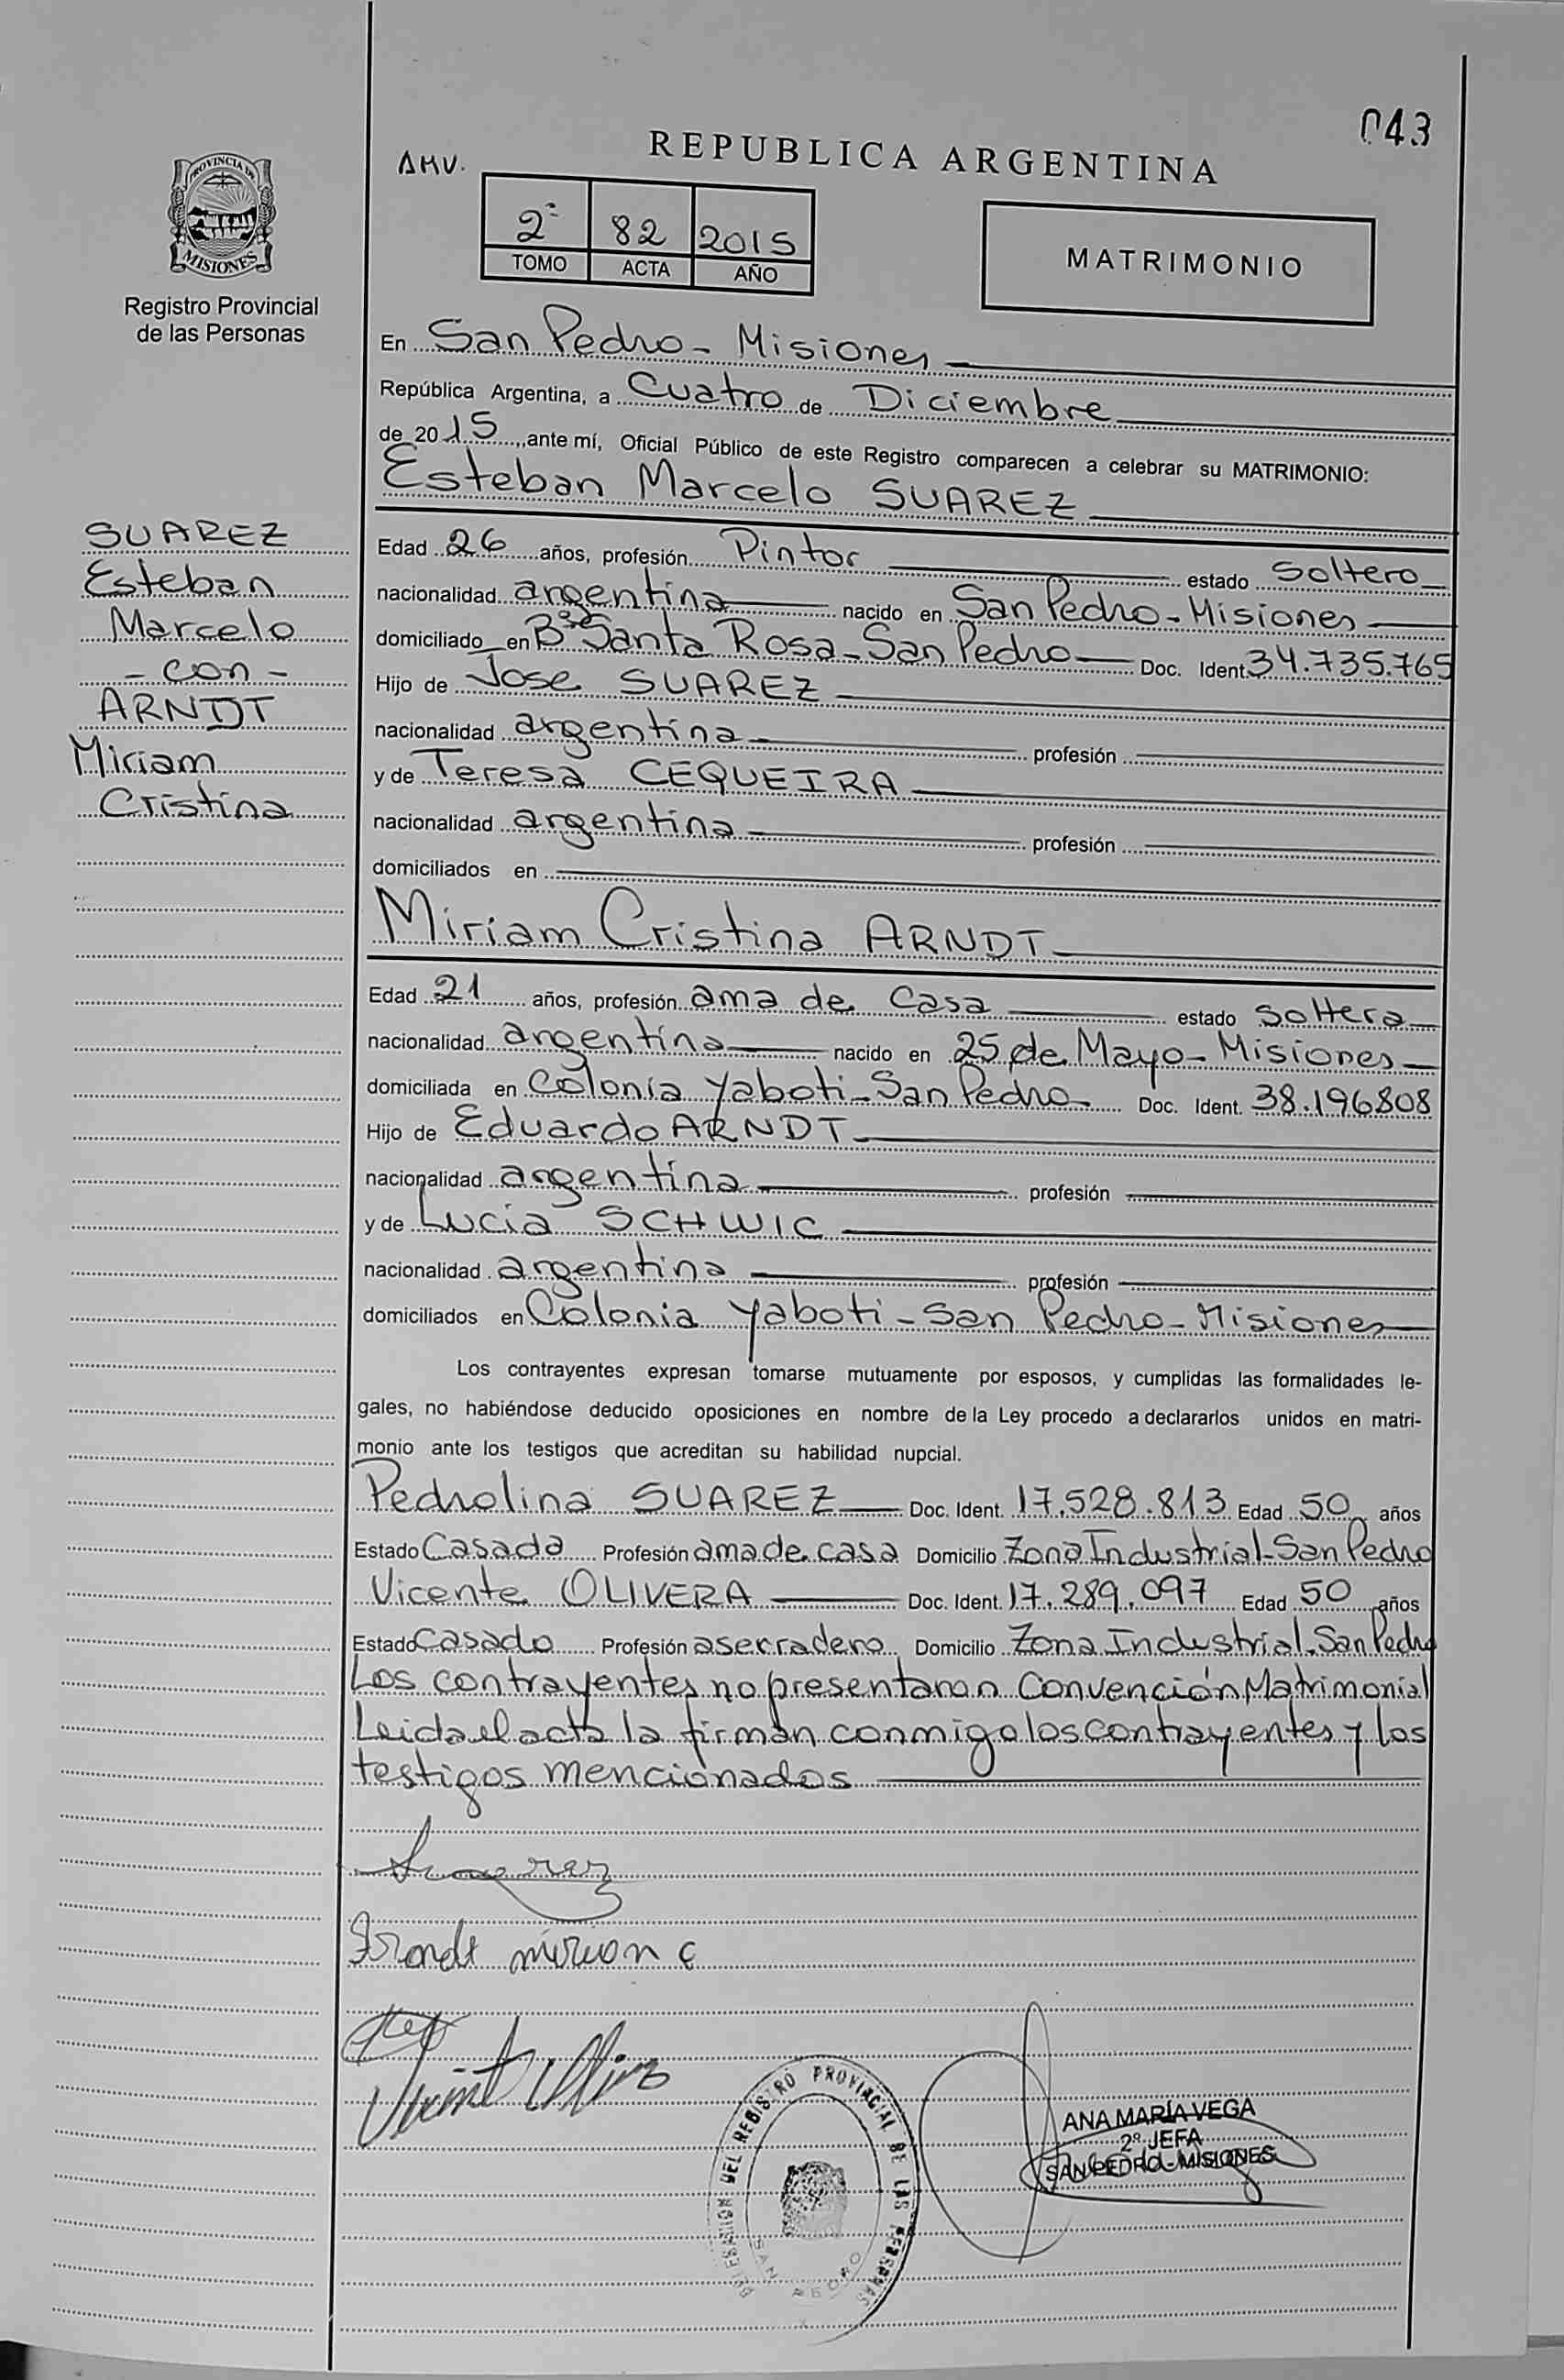 043
AMV.
REPUBLICA ARGENTINA
PROVINCIA DE
MISIONES
Registro Provincial
de las Personas
2º 82 2015
TOMO ACTA AÑO
MATRIMONIO
En San Pedro - Misiones
República Argentina, a Cuatro de Diciembre
de 2015, ante mí, Oficial Público de este Registro comparecen a celebrar su MATRIMONIO:
Esteban Marcelo SUAREZ
SUAREZ
Esteban
Marcelo
- con -
ARNDT
Miriam
Cristina
Edad 26 años, profesión Pintor estado Soltero
nacionalidad argentina nacido en San Pedro - Misiones
domiciliado en Bº Santa Rosa - San Pedro Doc. Ident. 34.735.765
Hijo de Jose SUAREZ
nacionalidad argentina profesión
y de Teresa CEQUEIRA
nacionalidad argentina profesión
domiciliados en
Miriam Cristina ARNDT
Edad 21 años, profesión ama de Casa estado Soltera
nacionalidad argentina nacido en 25 de Mayo - Misiones
domiciliada en Colonia Yaboti - San Pedro - Doc. Ident. 38.196808
Hijo de Eduardo ARNDT
nacionalidad argentina profesión
y de Lucia SCHWIC
nacionalidad argentina profesión
domiciliados en Colonia Yaboti - San Pedro - Misiones
Los contrayentes expresan tomarse mutuamente por esposos, y cumplidas las formalidades le-
gales, no habiéndose deducido oposiciones en nombre de la Ley procedo a declararlos unidos en matri-
monio ante los testigos que acreditan su habilidad nupcial.
Pedrolina SUAREZ Doc. Ident. 17.528.813 Edad 50 años
Estado Casada Profesión ama de casa Domicilio Zona Industrial - San Pedro
Vicente OLIVERA Doc. Ident. 17.289.097 Edad 50 años
Estado Casado Profesión aserradero Domicilio Zona Industrial - San Pedro
Los contrayentes no presentaron Convención Matrimonial
Leida el acta la firman conmigo los contrayentes y los
testigos mencionados
Suarez
Arndt miriam c
DELEGACION DEL REGISTRO PROVINCIAL DE LAS PERSONAS
SAN PEDRO
ANA MARÍA VEGA
2ª JEFA
SAN PEDRO - MISIONES